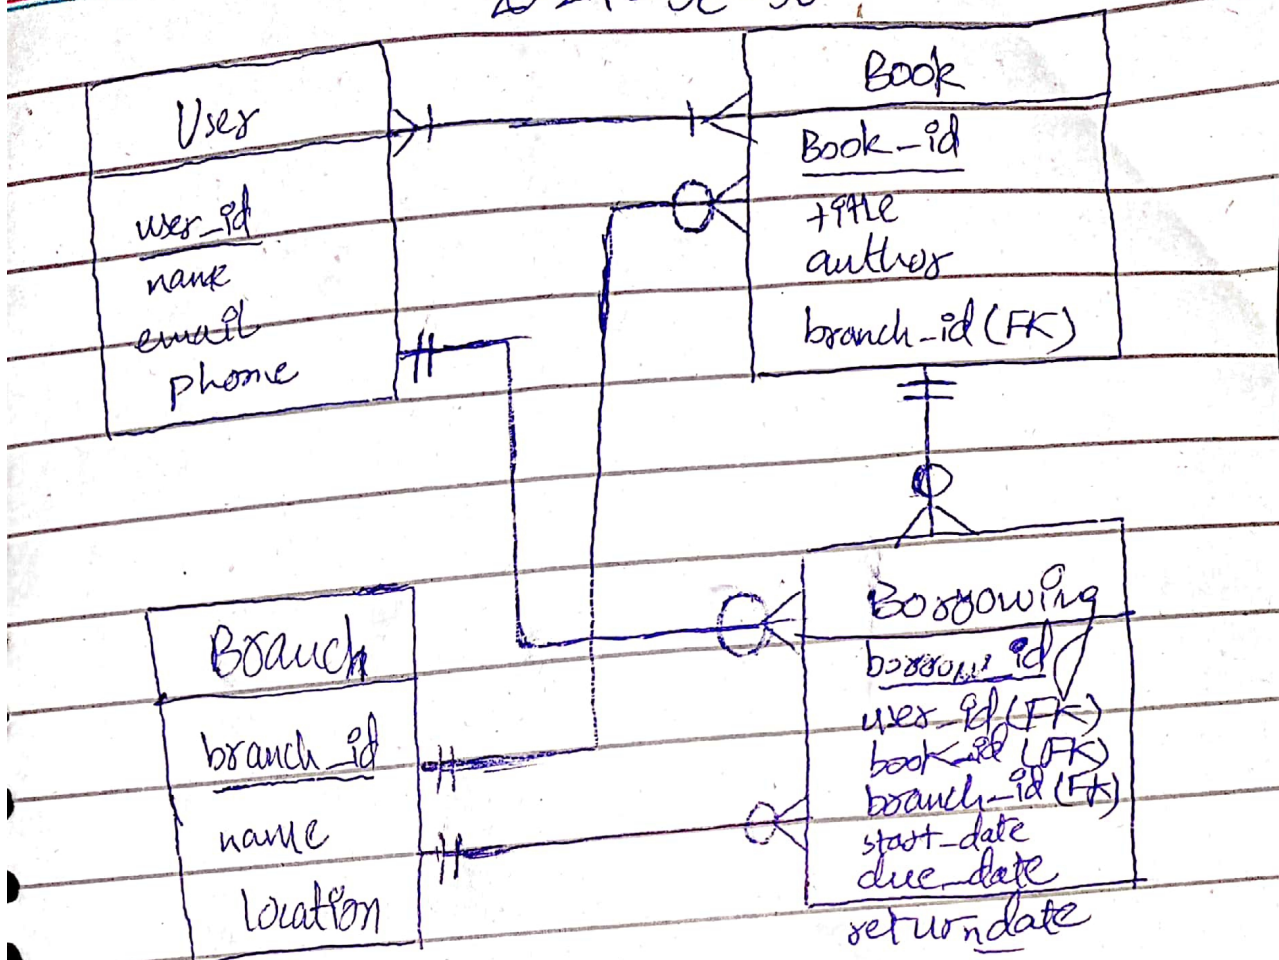 User
user_id
name
email
phone
Book
Book_id
title
author
branch_id (FK)
Branch
branch_id
name
location
Borrowing
borrow_id
user_id (FK)
book_id (FK)
branch_id (FK)
start_date
due_date
return_date